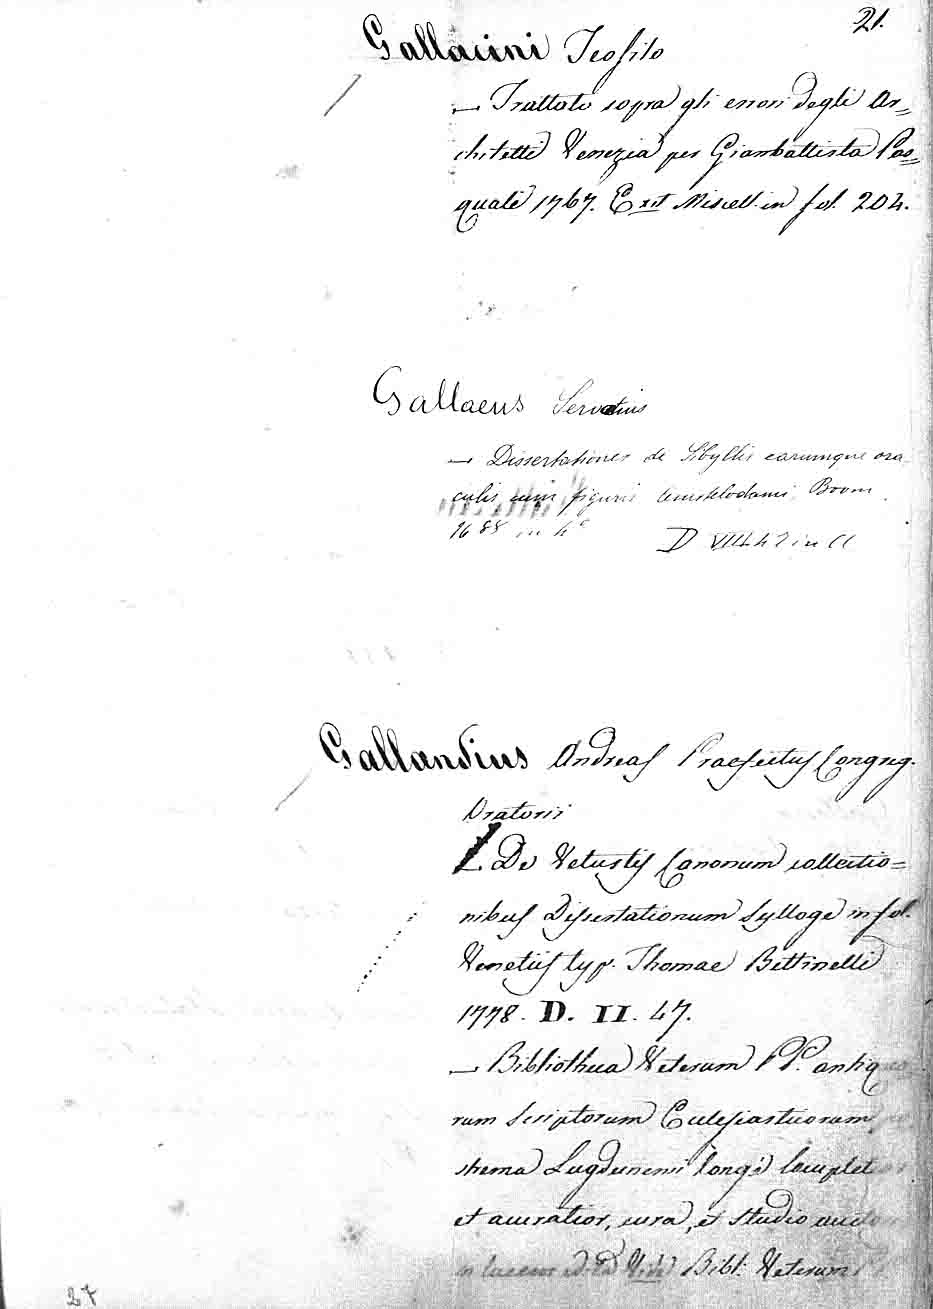 21.
Gallacini Teofilo
— Trattato sopra gli errori degli Ar=
chitetti Venezia per Giambattista Pas=
quali 1767. Exit Miscell. in fol. 204.
Gallaeus Servatius
— Dissertationes de Sibyllis earumque ora
culis cum figuris Amstelodami, Boom
1688 in 4°
Gallandius Andreas Praefectus Congreg.
Oratorii
— De Vetustis Canonum collectio=
nibus Dissertationum Sylloge in fol.
Venetiis typ. Thomae Bettinelli
1778. D. II. 47.
— Bibliotheca Veterum PP. antiquo
rum Scriptorum Ecclesiasticorum
strema Lugdunensi longè locuplet
et accuratior, cura, et studio
Bibl. Veterum
27